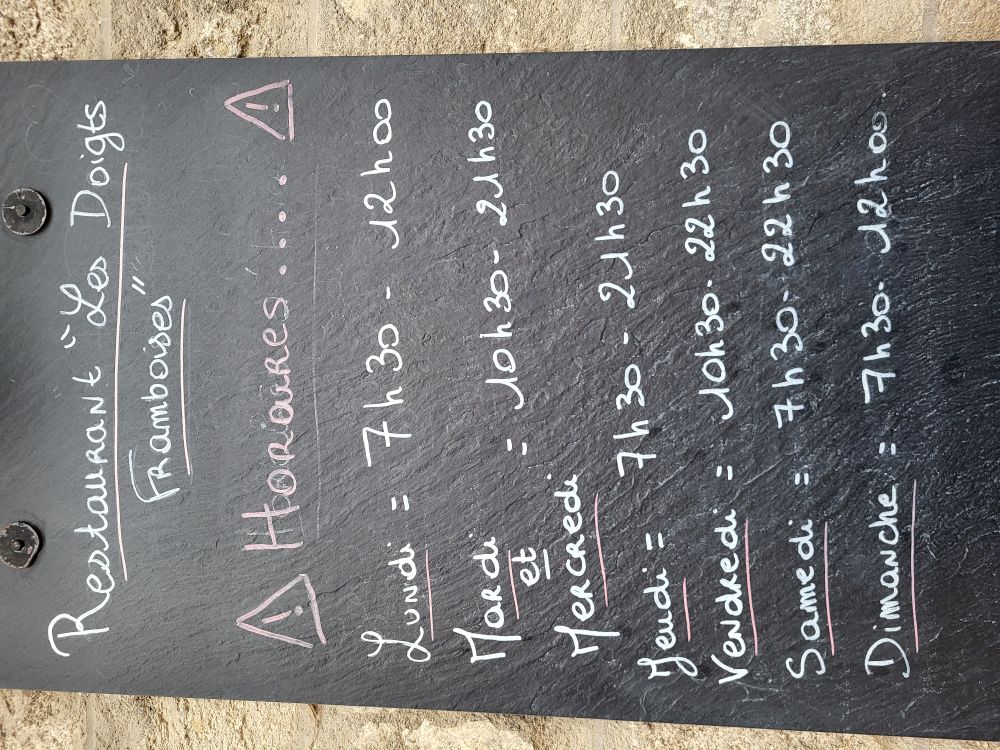 Restaurant "Les Doigts
Framboises"
⚠ Horaires.!... ⚠
Lundi = 7h30 - 12h00
Mardi
et = 10h30 - 21h30
Mercredi
Jeudi = 7h30 - 21h30
Vendredi = 10h30 - 22h30
Samedi = 7h30 - 22h30
Dimanche = 7h30 - 12h00.